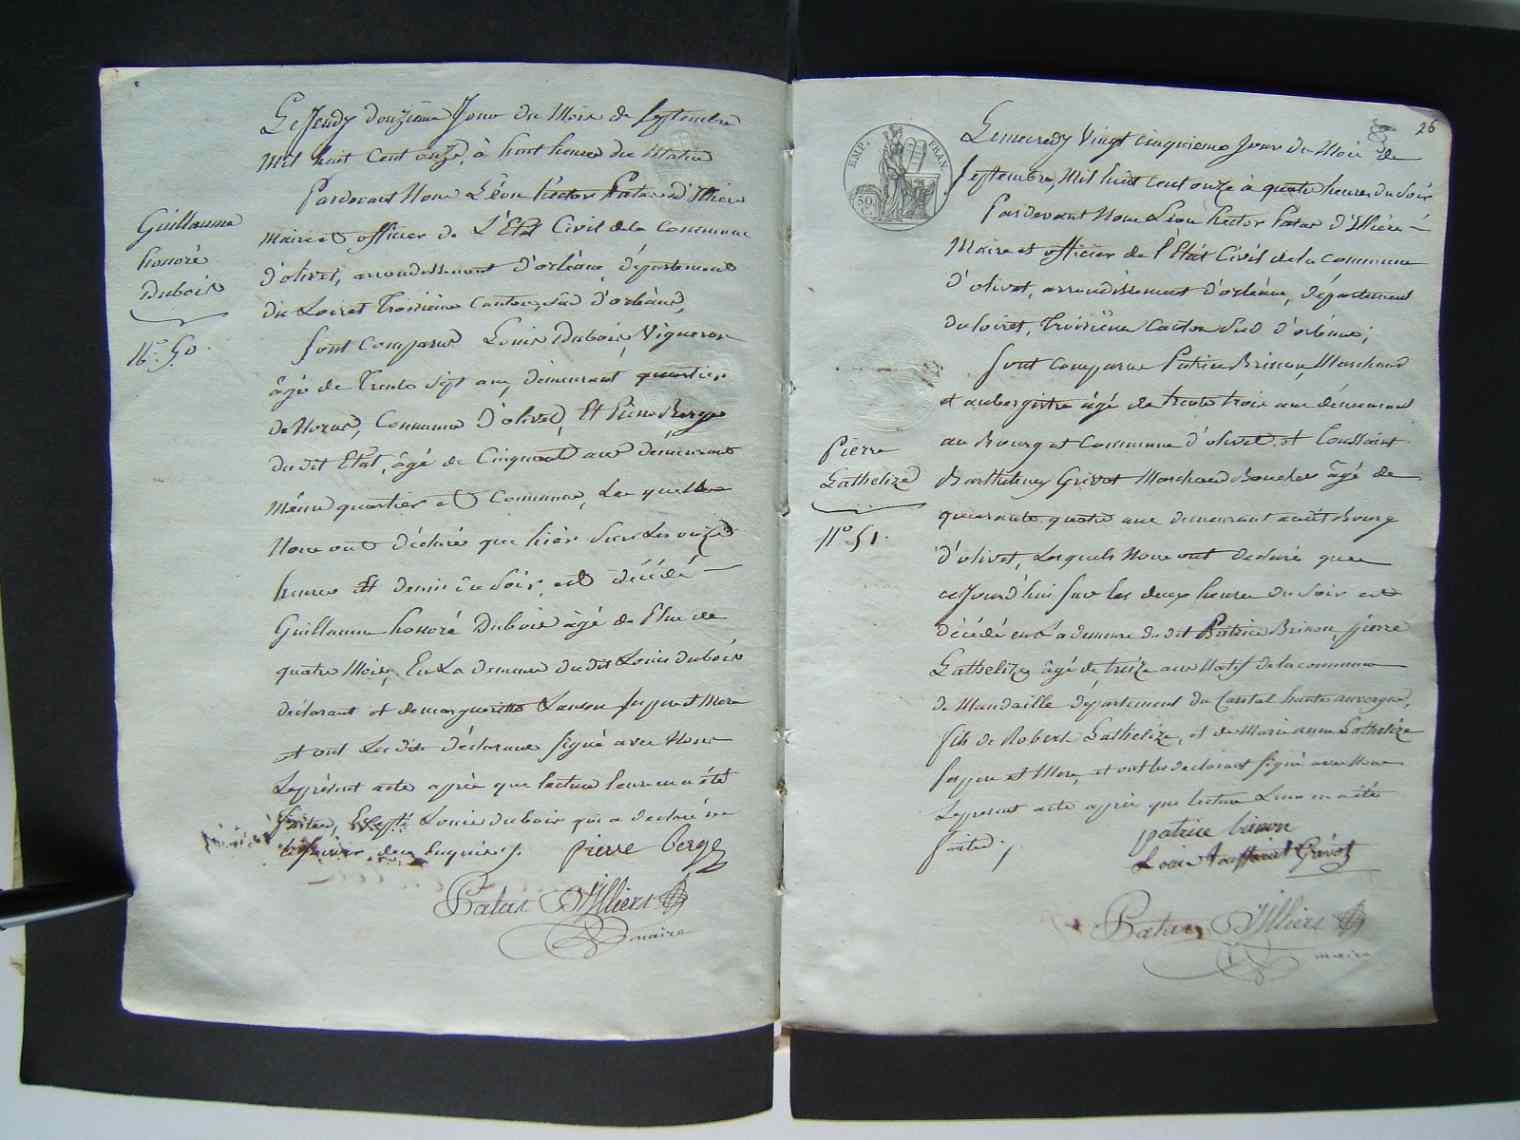 Guillaume
honoré
Dubois
N.° 50.
Le Jeudy Douzieme Jour du Mois de Septembre
Mil huit Cent onze, à huit heures du Matin
Pardevant Nous Léon hector Patas D'Illiers
Maire et officier de L'État Civil de la Commune
d'olivet, arrondissement d'orléans, département
du Loiret Troisieme Canton, sud d'orléans,
Sont Comparus Louis Dubois, Vigneron
âgé de Trente Sept ans, demeurant quartier
de Noras, Commune D'olivet, Et Pierre Berge
du dit Etat, âgé de Cinquante ans demeurant
même quartier et Commune, Les quels
Nous ont déclaré que hier Sur Les onze
heures Et demie du Soir, est décédé
Guillaume honoré Dubois âgé de Plus de
quatre Mois, En La demeure du dit Louis dubois
déclarant et de marguerite Lanson Ses pere et Mere
et ont Les dits déclarants signé avec Nous
Le présent acte après que lecture leur en a été
faitte, Excepté Louis dubois qui a declaré ne
le savoir de ce Enquis.
pierre berge
Patas D'Illiers
maire
26
EMP. FRAN.
50 C.
Pierre
Lathelize
N.° 51.
Le mecredy Vingt cinquieme Jour du Mois de
Septembre, Mil huit cent onze à quatre heures du Soir
Par devant Nous Léon hector Patas d'Illiers
Maire et officier de l'État Civil de la commune
d'olivet, arrondissement d'orléans, département
du loiret, Troisieme Canton Sud d'orléans;
Sont comparus Patrice Brinon, Marchand
et aubergiste âgé de trente trois ans demeurant
au Bourg et Commune d'olivet, et Toussaint
Barthelemy Grivot Marchand Boucher âgé de
quarante quatre ans demeurant audit Bourg
d'olivet, Lesquels Nous ont declaré que
ce Jourd'hui sur les deux heures du Soir est
décédé en La demeure du dit Patrice Brinon, pierre
Lathelize âgé de treize ans Natif de la commune
de Mandaille département du Cantal haute auvergne,
fils de Robert Lathelize, et de Marie anne Lathelize
Ses pere et Mere, et ont les declarants signé avec Nous
Le present acte après que lecture Leur en a été
faitte.
patrice brinon
Louis toussaint Grivot
Patas D'Illiers
maire